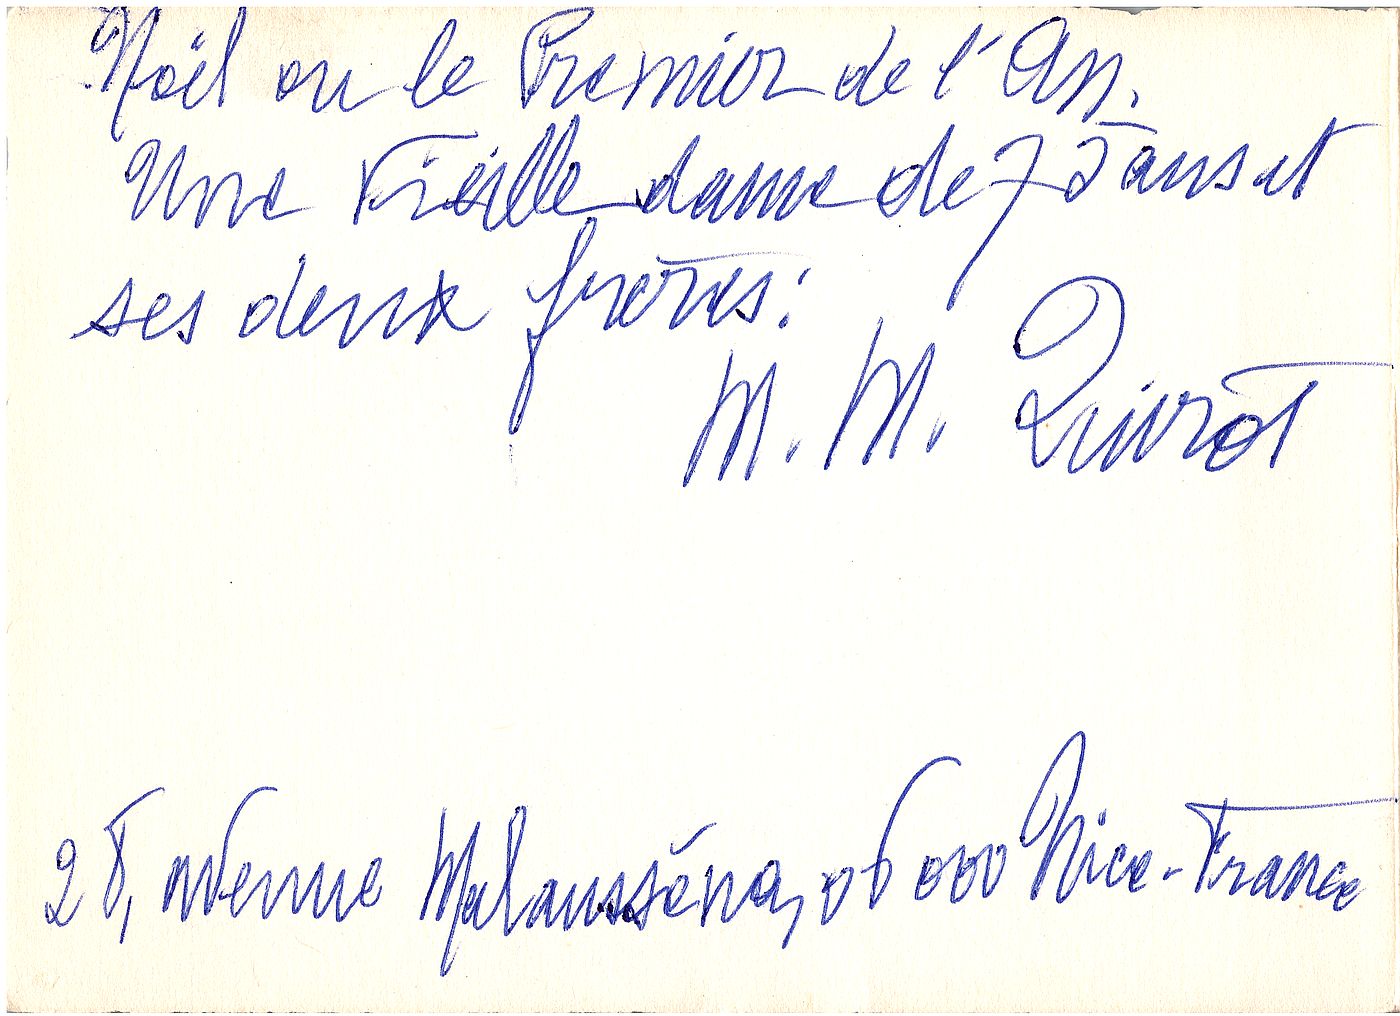 Noël ou le Premier de l'An.
Une vieille dame de 75 ans et
ses deux frères:
M. M. Quivrot
28, avenue Malausséna, 06000 Nice-France